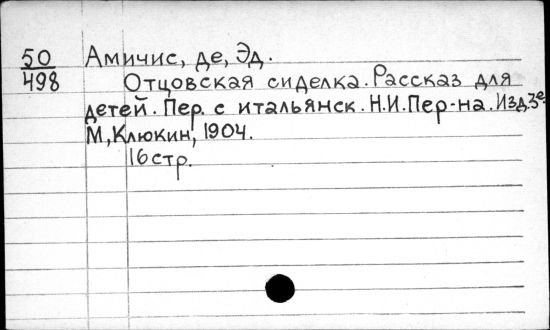 50 Амичис, де, Эд.
498 Отцовская сиделка. Рассказ для
детей. Пер. с итальянск. Н.И.Пер-на. Изд.3е.
М, Клюкин, 1904.
16 стр.